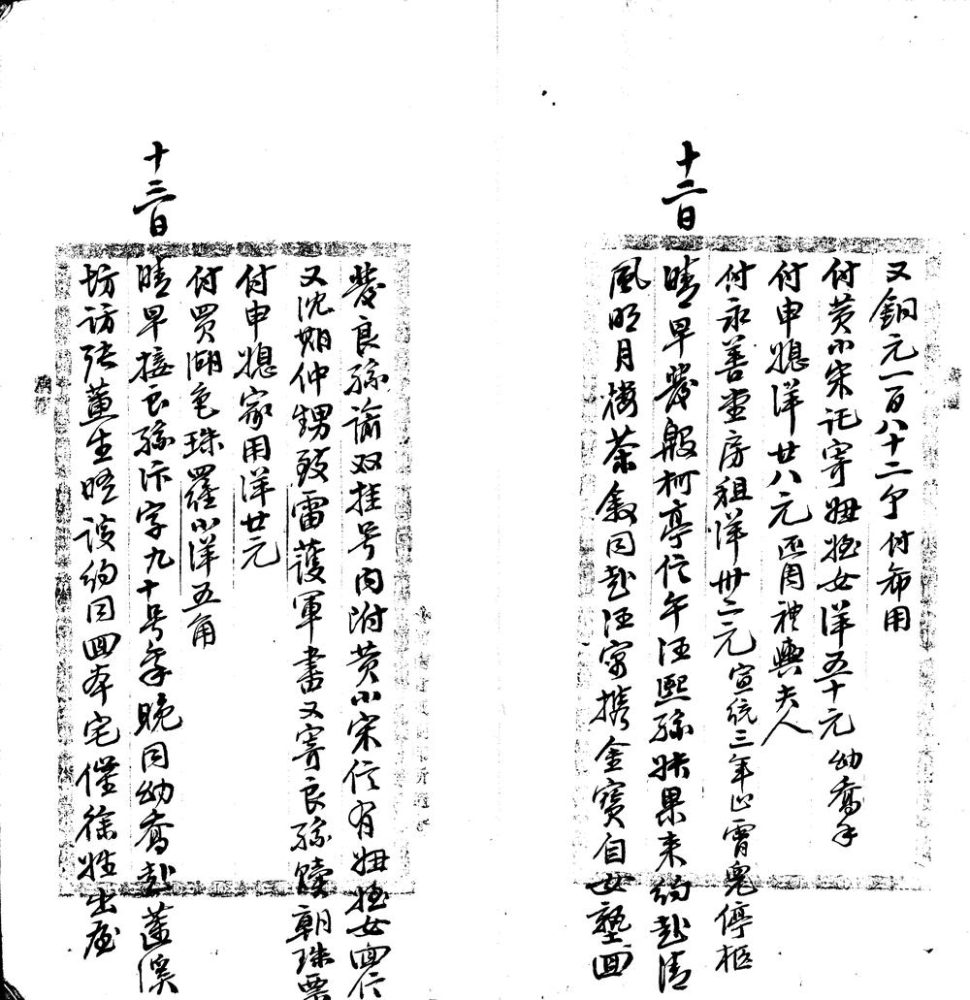 又銅元一百八十二个付布用
付黄小宋託寄妞姪女洋五十元幼喬手
付申媳洋廿八元匝周禮輿夫人
付永善堂房租洋卅二元宣統三年止霄兒停柩
十二日
晴早發般柯亭信午汪熙孫姝果来約赴清
風明月樓茶敘同赴汪寓携金寶自女塾回
發良孫諭双挂号内附黄小宋信有妞姪女回信
又沈 仲甥致雷護軍書又寄良孫贖朝珠票
付申媳家用洋廿元
付買湖色珠羅小洋五角
十三日
晴早接良孫汴字九十号禀晚同幼喬赴蓮溪
坊訪張蓮生晤談約同回本宅催徐姓出屋